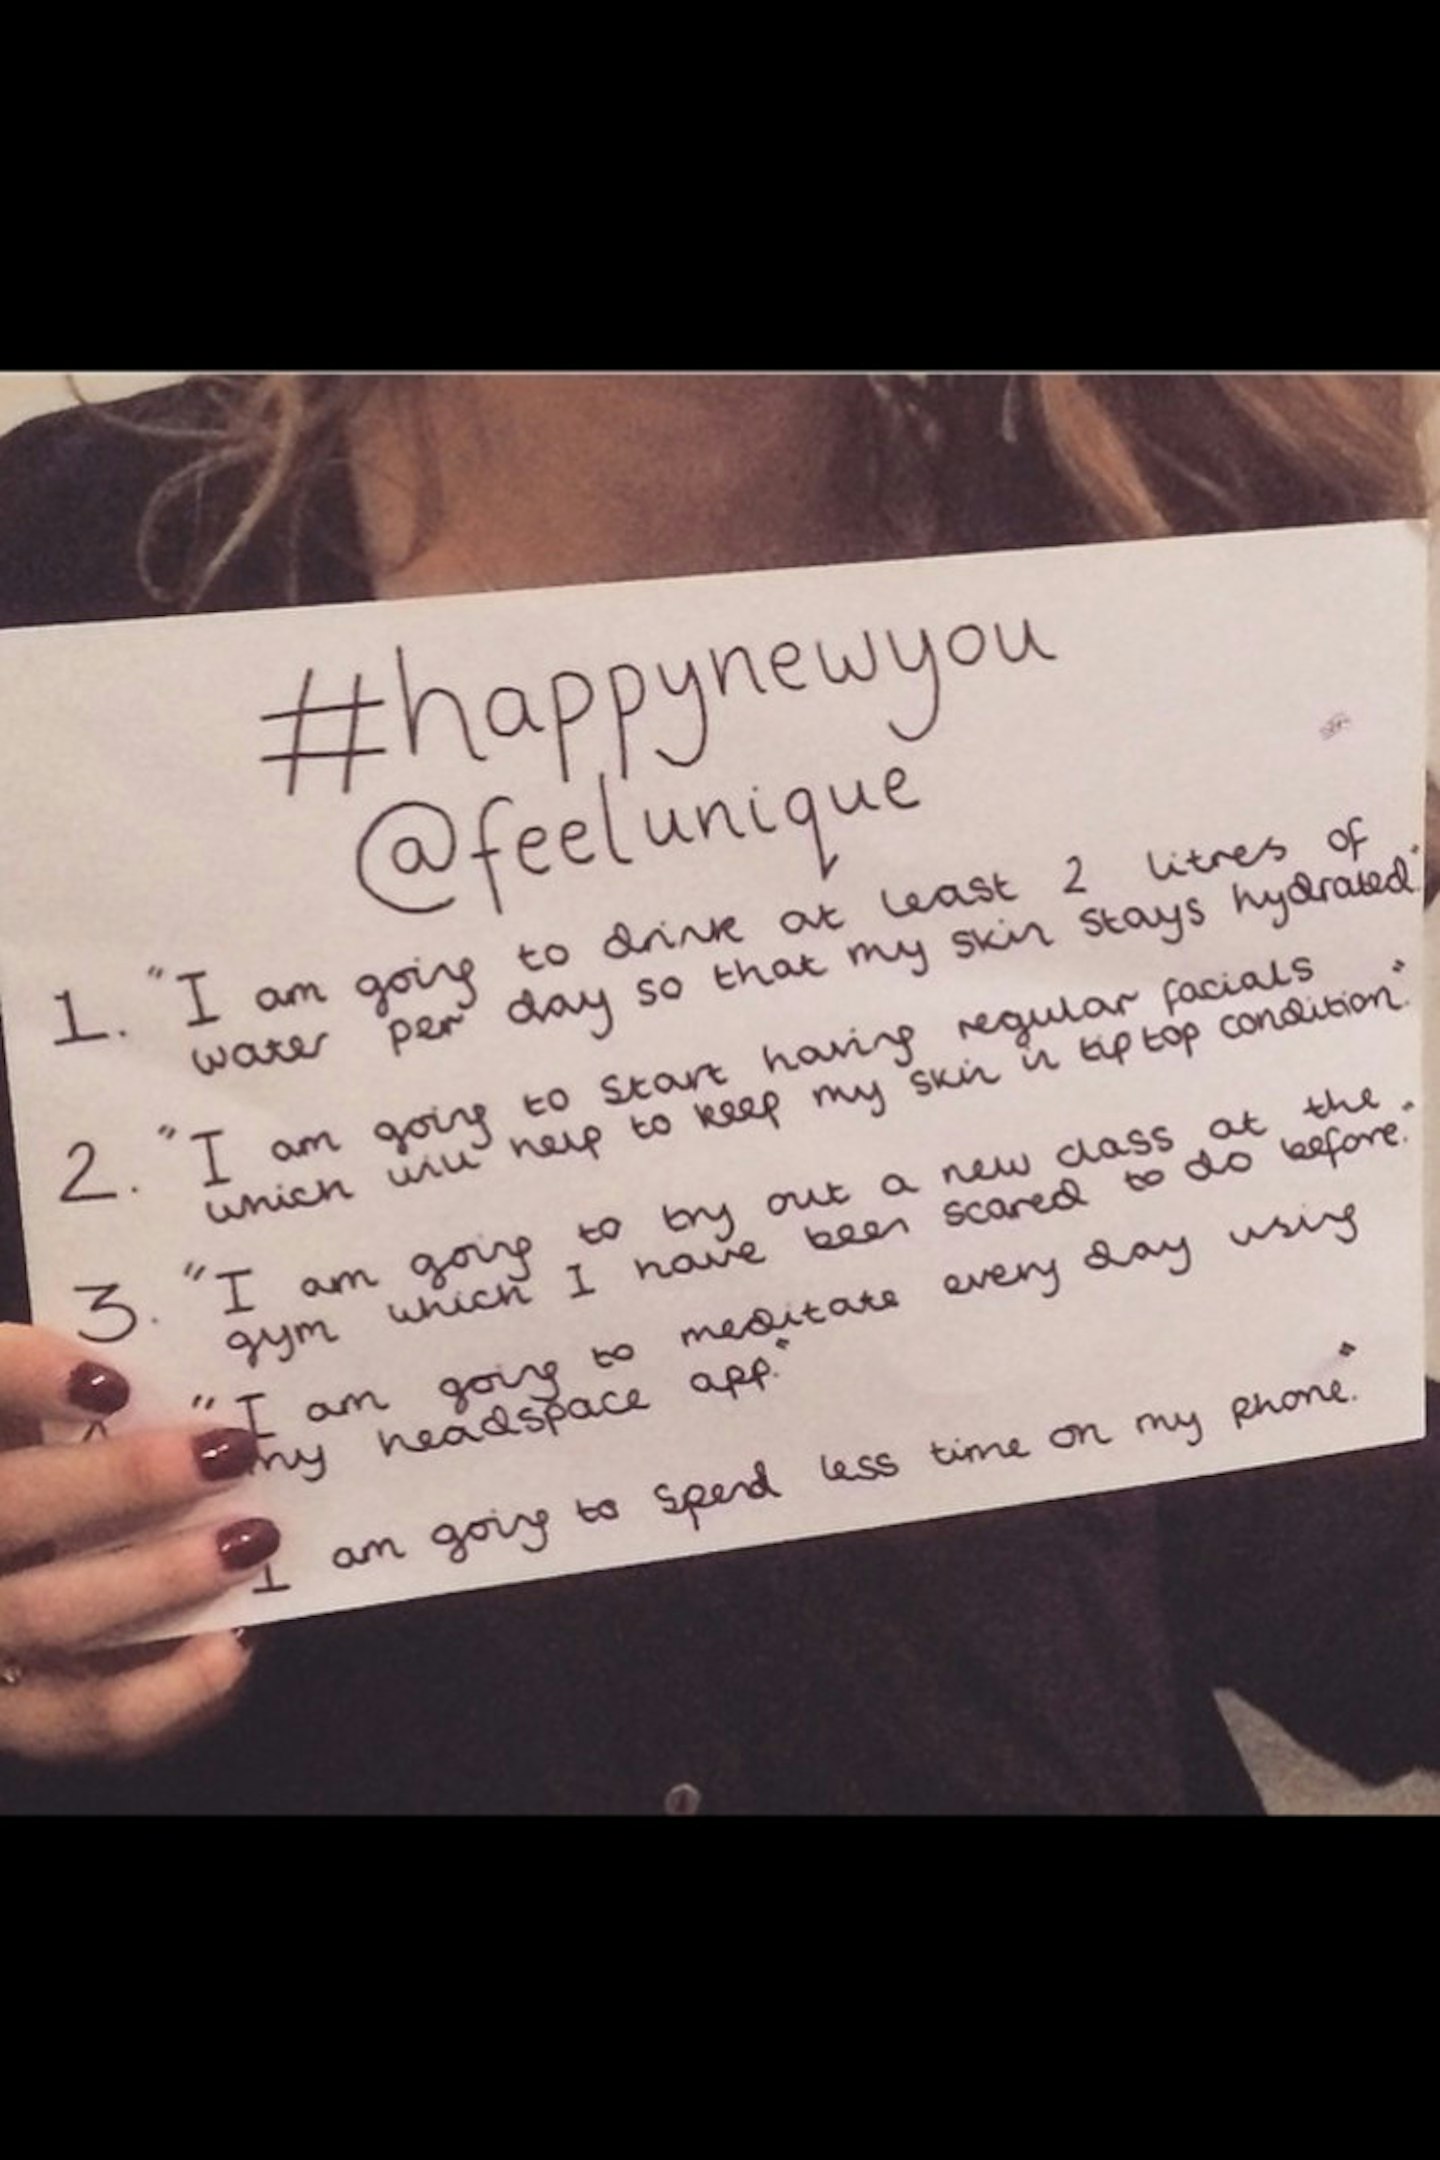 #happynewyou
@feelunique
1. "I am going to drink at least 2 litres of
water per day so that my skin stays hydrated."
2. "I am going to start having regular facials
which will help to keep my skin in tip top condition."
3. "I am going to try out a new class at the
gym which I have been scared to do before."
"I am going to meditate every day using
my headspace app."
I am going to spend less time on my phone."